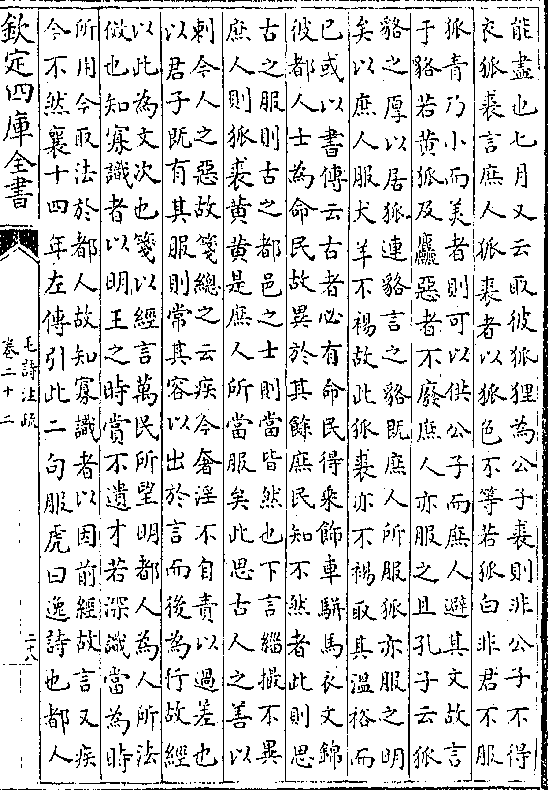 能盡也七月又云取彼狐狸為公子裘則非公子不得
衣狐裘言庶人狐裘者以狐色不等若狐白非君不服
狐青乃小而美者則可以供公子而庶人避其文故言
于貉若黄狐及麤惡者不廢庶人亦服之且孔子云狐
貉之厚以居狐連貉言之貉既庶人所服狐亦服之明
矣以庶人服犬羊不裼故此狐裘亦不裼取其溫裕而
已或以書傳云古者必有命民得乘飾車駢馬衣文錦
彼都人士為命民故異於其餘庶民知不然者此則思
古之服則古之都邑之士則當皆然也下言緇撮不異
庶人則狐裘黄黄是庶人所當服矣此思古人之善以
刺今人之惡故箋總之云疾今奢淫不自責以過差也
以君子既有其服則常其容以出於言而後為行故經
以此為文次也箋以經言萬民所望明都人為人所法
倣也知寡識者以明王之時賞不遺才若深識當為時
所用今取法於都人故知寡識者以因前經故言又疾
今不然襄十四年左傳引此二句服虔曰逸詩也都人
欽定四庫全書
毛詩注疏
卷二十二
二十八